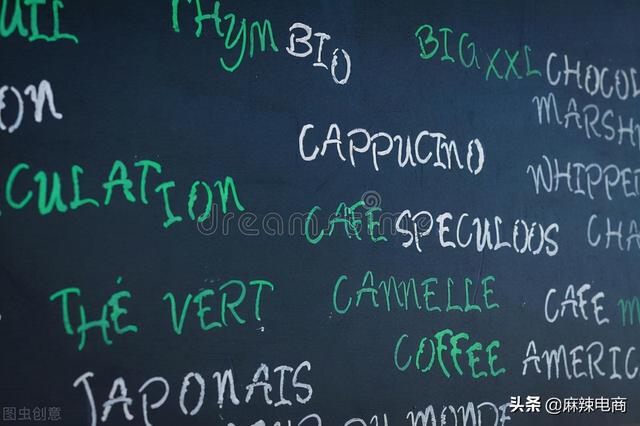 UIL THYM BIO BIG XXL CHOCOL
ON MARSH
CAPPUCINO
CULATION WHIPPE
CAFE SPECULOOS CHA
dreamstime
THÉ VERT CANNELLE CAFE M
COFFEE AMERIC
JAPONAIS
DU MONDE
图虫创意
头条 @麻辣电商